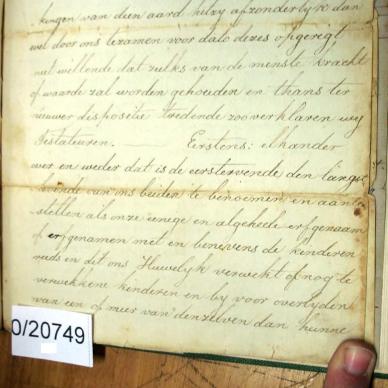 kingen van dien aard hetzy afzonderlyk dan
wel door ons tezamen voor dato dezes opgeregt
niet willende dat zulks van de menste kracht
of waarde zal worden gehoeden en thans ter
nieuwer dispositie tredende zoo verklaren wey
Testateuren. Eerstens: elkander
wer en weder dat is de eerstervende den langst
levende van ons beiden te benoemen en aante
stellen als onze enege en algehele erfgenaam
of erfgenamen met en benevens de kinderen
reeds en dit ons Huwelyk verwekt of nog te
verwekken kinderen en by voor overlyden
van een of meer van denzelven dan hunne
0/20749